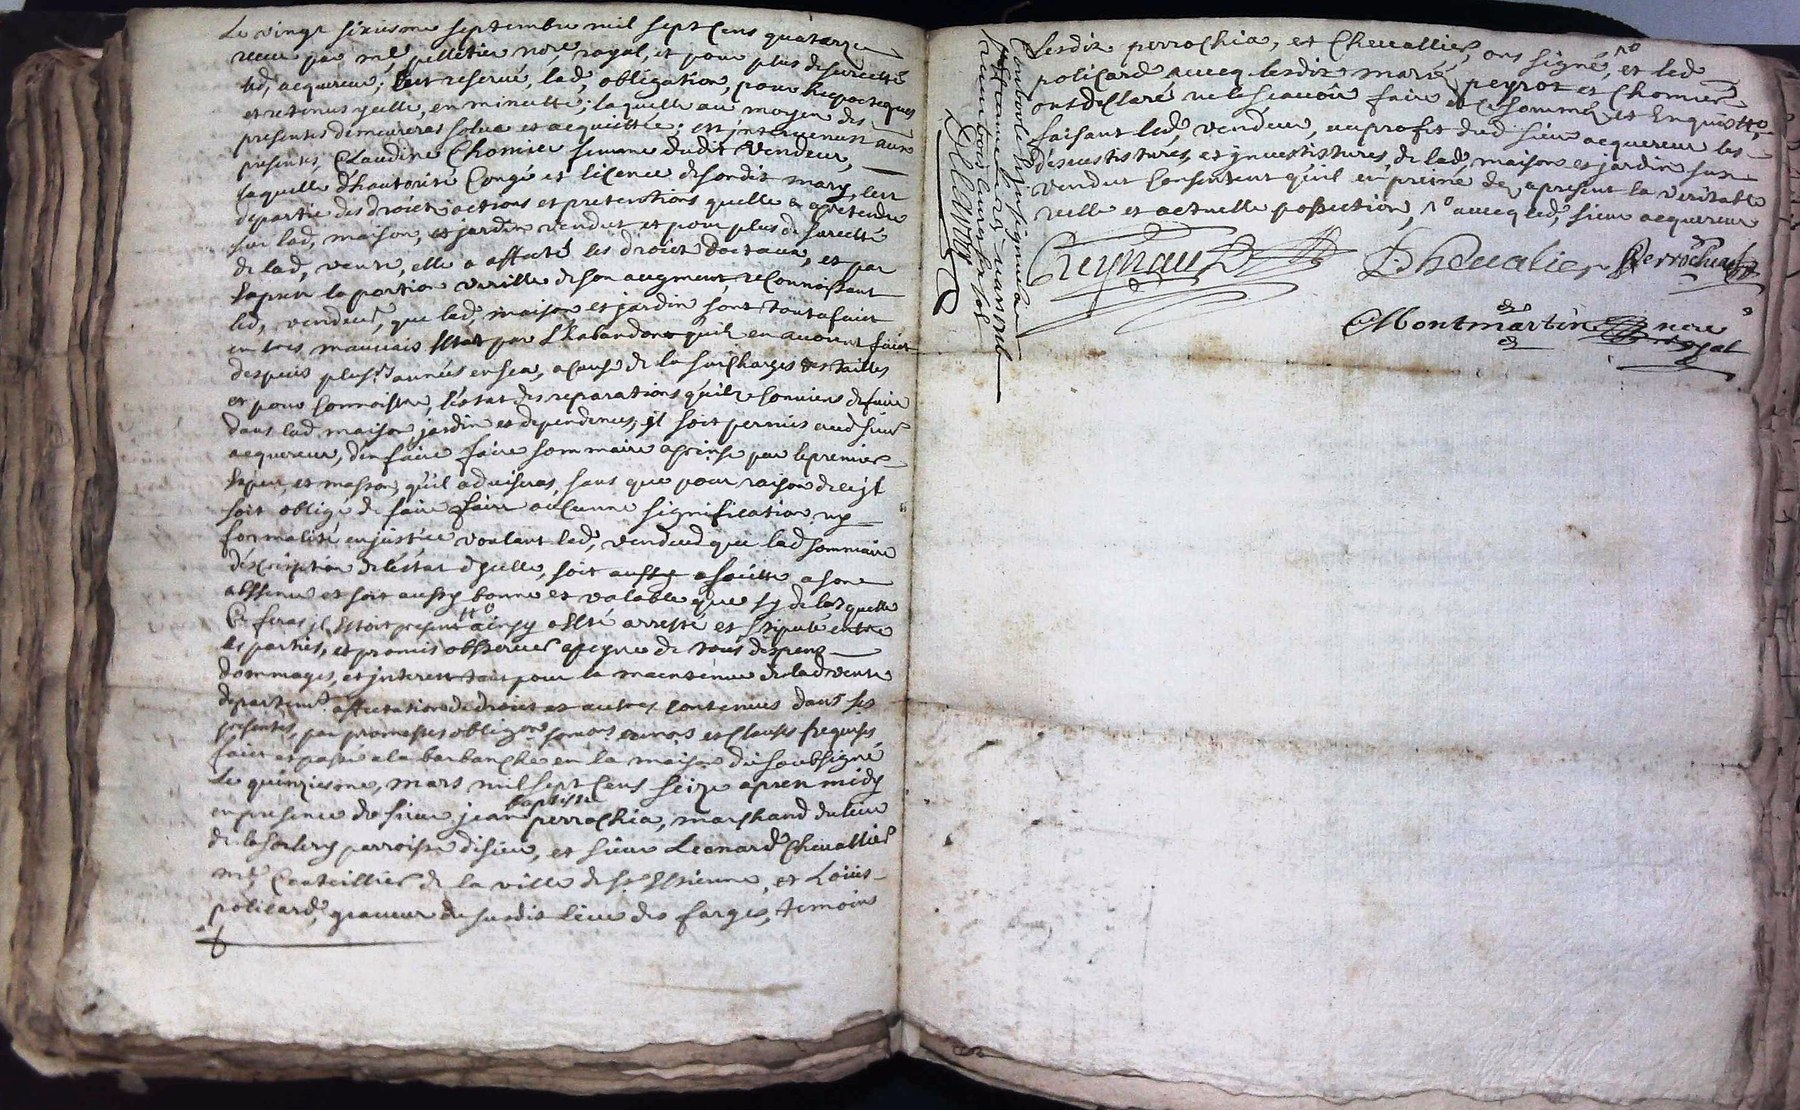 Le vingt sixiesme septembre mil sept Cens quatorze
receu par me pelletier nore royal, et pour plus de surretté
led, acquereur, s'est reservé, lad, obligation, pour hipoteques
et retenus ycelle, en minutte; laquelle au moyen des
presentes demeureras solue et acquittée; est intervenus aux
presentes, Claudine Chomier femme dudit Vendeur,
laquelle d'hautorité Congé et licence de sondit mary, s'est
departie des droicts actions et pretentions quelle a pretendre
sur lad, maison, et jardin vendut et pour plus de surretté
de lad, vente, elle a affecté les droicts doctaux, et par
exprès la portion virille de son augment reConnoissant
led, vendeur, que lad, maison et jardin sont toutafaict
en tres mauvais estat par l'habandont quils en avoient faict
despuis plusrs années ensca, a cause de la surCharges des tailles
et pour Connoistre, l'estat des reparations qu'il Conviens de faire
dans lad maison, jardin et dependences, jl soit permis aud sieur
acquereur, d'en faire faire sommaire aprise par le premier
expert, et masson, qu'il advisera, sans que pour raison de ce jl
soit obligé de faire faire aucunne signification, ny
formalité en justice voulant led, vendeur que lad sommaire
déscription de l'éstat d'ycelle, soit aussy a faitte a son
abssence et soit aussy bonne et valable que sy de lasquelle
Ce feras jl estoit present ainsy a esté arresté et stipulé entre
les parties, et promis obsserver a peyne de tous despens
dommages, et jnterest tait pour la maintenue de lad vente
departemt affectation de droict et autres Contenus dans ses
presentes, par promesses obligaons somons renons et Clauses requises
faict et passé a la barbanche en la maison du soubsigné
Le quinziesme, mars mil sept Cens seize apres midy
en presence de sieur jean baptiste perrochia, marchand du lieu
de la sertery parroisse disieu, et sieur Leonard Chevallier
me Couteillier de la ville de st Estienne, et Loüis
policard, graveur du susdit lieu des farges, temoins
Lesdit perrochia, et Chevallier, ont signé, et led
policard avecq lesdit mariés peyrot et Chomier
ont declaré ne le scavoir faire de ce sommés et Enquis
faisant led, vendeur, au profit dud sieur acquereur les
desvestistures, et jnvestistures, de lad, maison et jardin sus
vendut Consentent qu'il en prene des apresent la veritable
reelle et actuelle possection, avecq led, sieur acquereur
Reynaud Chevalier perrochia
Montmartin nore royal